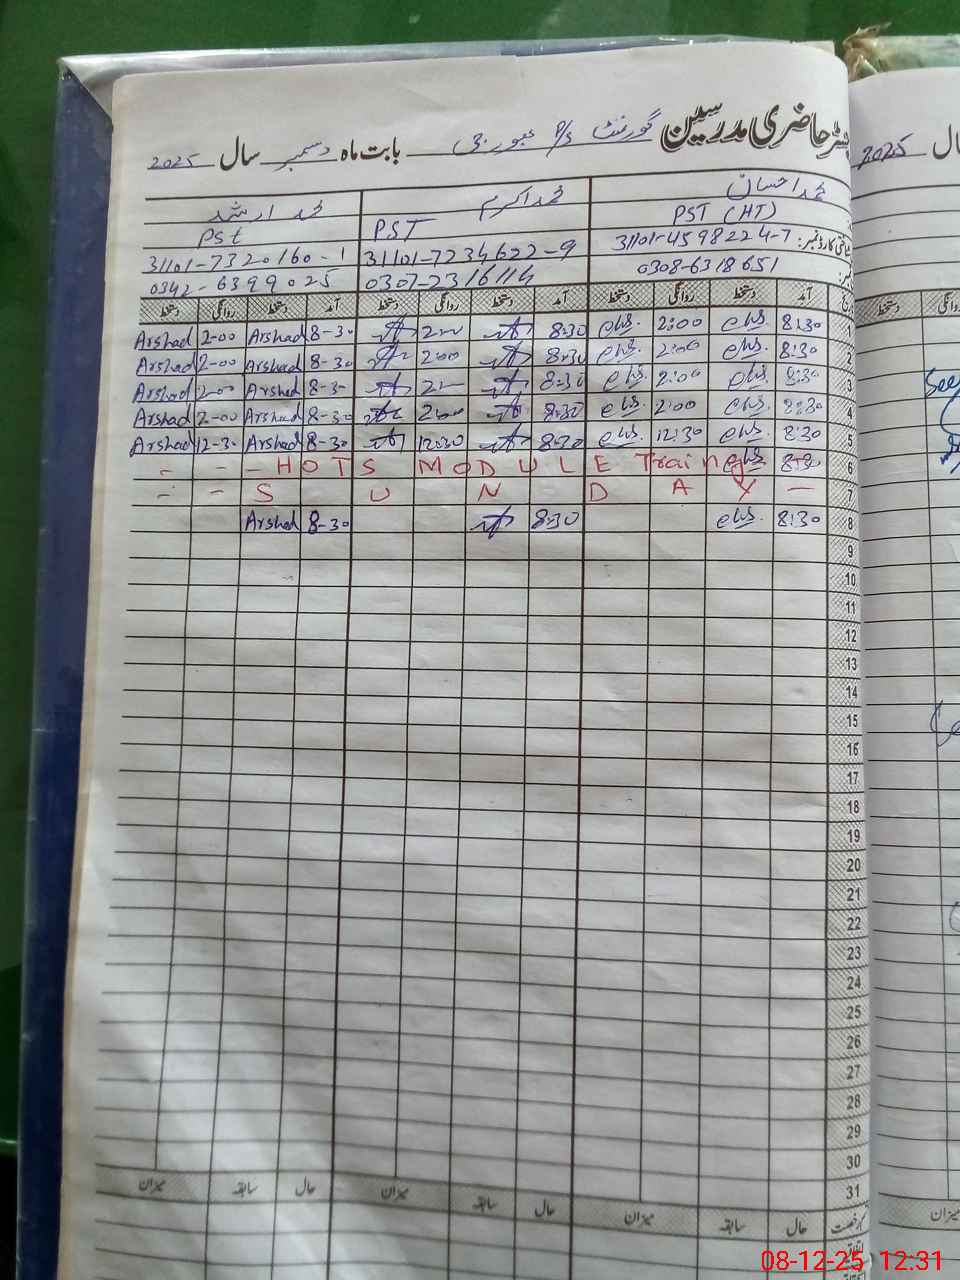 رجسٹر حاضری مدرسین گورنمنٹ P/S بابت ماہ دسمبر سال 2025
محمد احسان محمد اکرم محمد ارشد
PST (HT) PST PSt
شناختی کارڈ نمبر: 31101-4598224-7 31101-7234622-9 31101-7320160-1
0308-6318651 0307-2316114 0342-6399025
آمد دستخط روانگی دستخط آمد دستخط روانگی دستخط آمد دستخط روانگی دستخط
1 8:30 2:00 8:30 2:00 8-30 Arshad 2-00 Arshad
2 8:30 2:00 8:30 2:00 8-30 Arshad 2-00 Arshad
3 8:30 2:00 8:30 2:00 8-30 Arshad 2-00 Arshad
4 8:30 2:00 8:30 2:00 8-30 Arshad 2-00 Arshad
5 8:30 12:30 8:30 12:30 8-30 Arshad 12-30 Arshad
6 8:30 - - - HOTS MODULE Training
7 - - SUNDAY -
8 8:30 8:30 8-30 Arshad
9
10
11
12
13
14
15
16
17
18
19
20
21
22
23
24
25
26
27
28
29
30
31
حال سابقہ میزان حال سابقہ میزان حال سابقہ میزان
سال 2025
روانگی دستخط
میزان
08-12-25 12:31